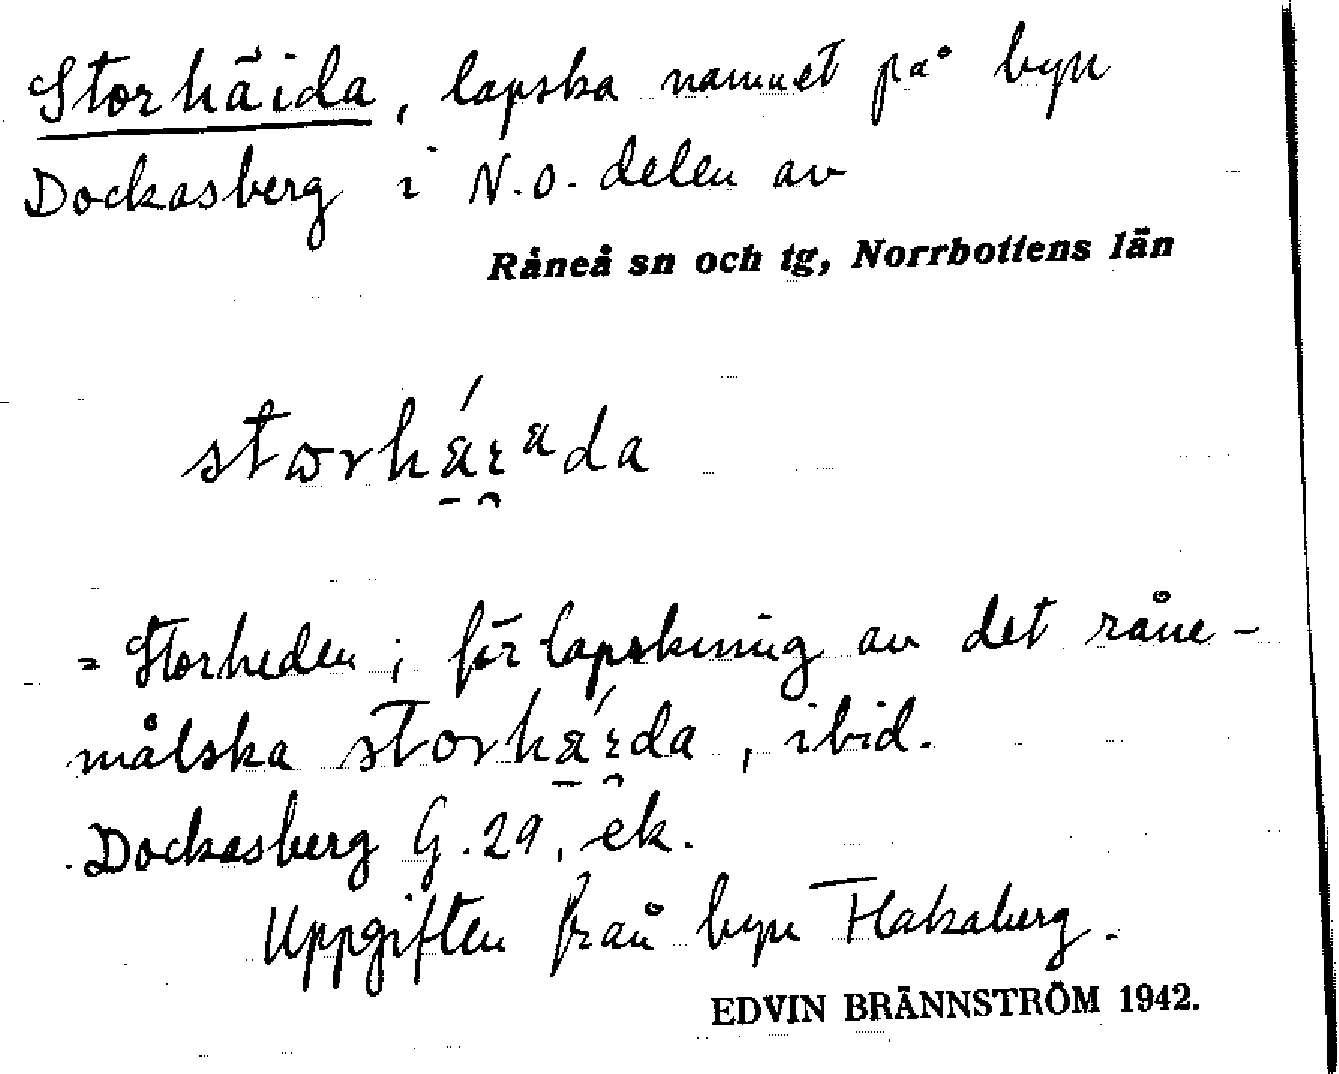 Storhäida, lapska namnet på byn
Dockasberg i N.O. delen av
Råneå sn och tg, Norrbottens län
= Storheden; förlapskning av det råne-
målska, ibid.
Dockasberg G. 29, ek.
Uppgiften från byn Flakaberg.
EDVIN BRÄNNSTRÖM 1942.